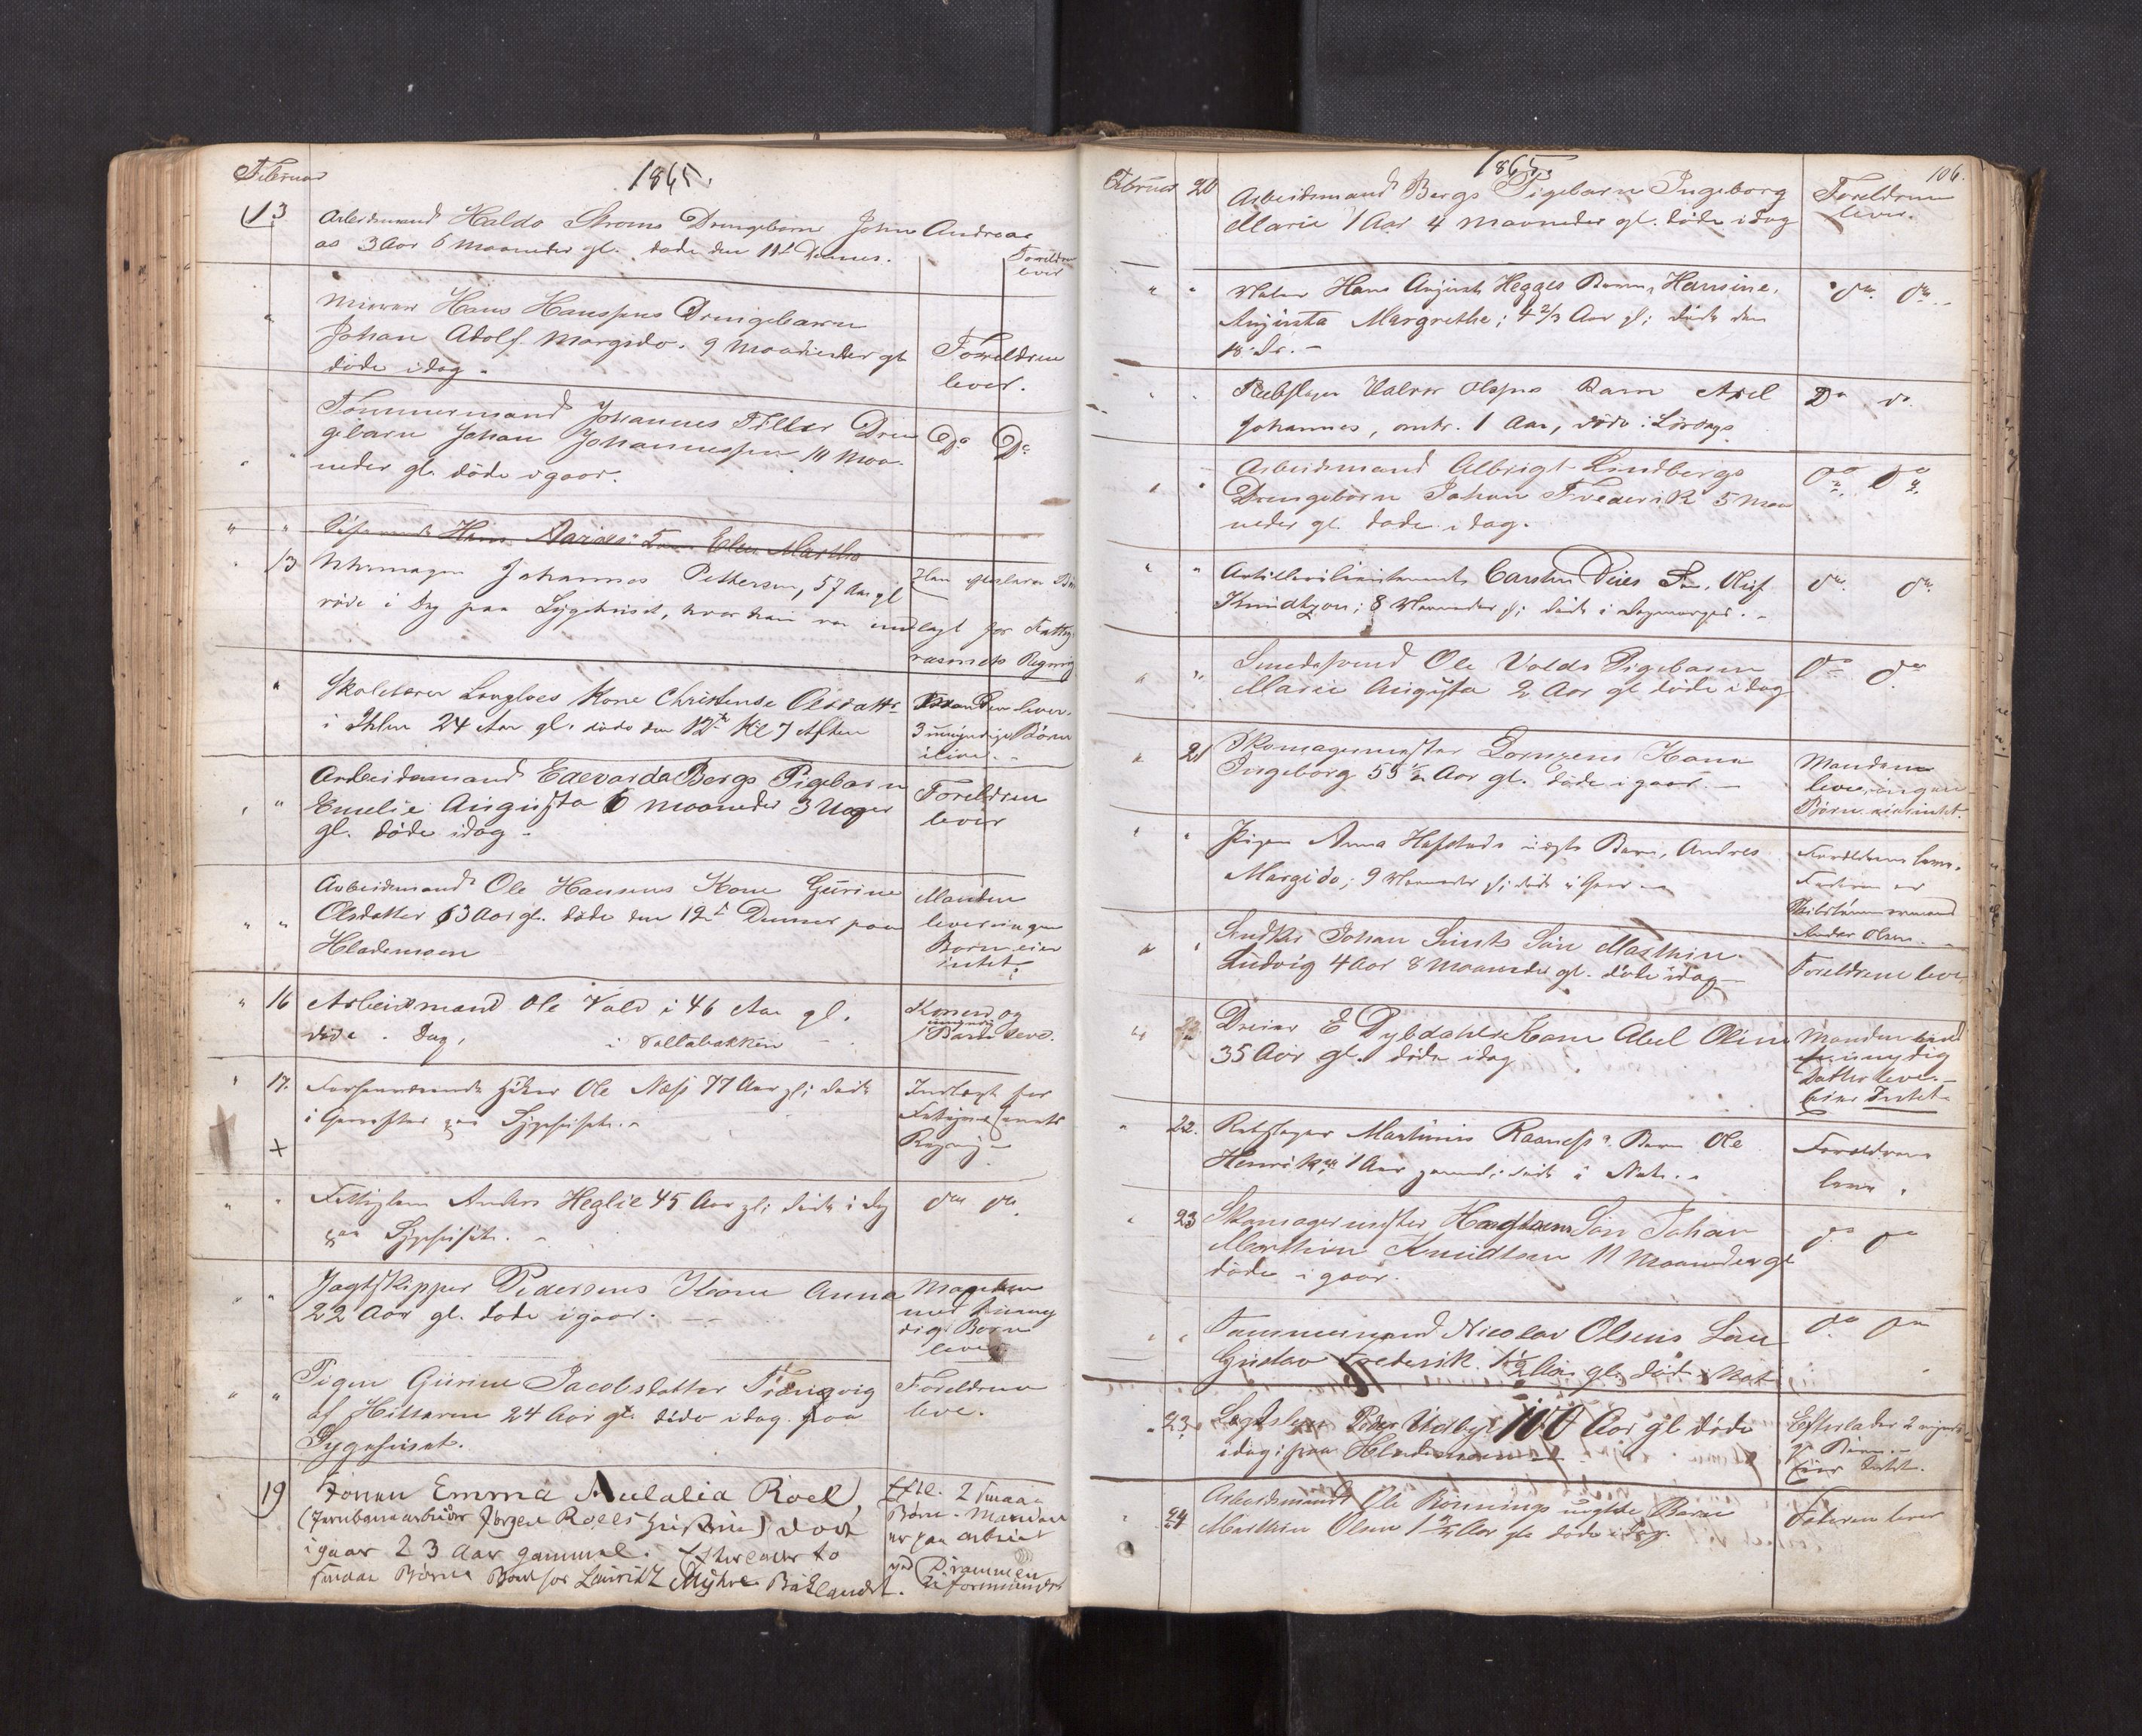 Februar
1865.
13 Arbeidsmand Haldo Stroms Drengebarn John Andreas
as 3 Aar 6 Maaneder gl. døde den 11te Dennes.
Foreldrene
lever
" Murer Hans Hanssens Drengebarn
Johan Adolf Margido. 9 Maaneder gl
døde idag.
Foreldrene
lever.
" " Tømmermand Johannes Tiller Dren
gebarn Johan Johannessen 10 Maa-
neder gl. døde igaar.
Do Do
" " Hans Aaraas Elen Martha
" 13 Johannes Pettersen, 57 Aar gl
døde i Dag paa Sygehuset, hvor han var indlagt for Fattig
væsenets Regning
Han efterlader
" Skolelærer Langloes Kone Christense Olsdattr
i Ihlen 24 Aar gl. døde den 12te Kl 7 Aften
Manden lever.
3 umyndige Børn
ilive.
" " Arbeidsmand Edevarda Bergs Pigebarn
Emelie Augusta 6 Maaneder 3 Uger
gl. døde idag.
Foreldrene
lever
" " Arbeidsmand Ole Hansens Kone Gurine
Olsdatter 63 Aar gl. døde den 12te Dennes paa
Hlademoen
Manden
lever ingen
Børn eier
intet.
" 16 Arbeidsmand Ole Vold i 46 Aar gl.
døde i Dag, i Vollabakken
Konen og
umyndig
1 Barn leve.
" 17. Forhenværende Ole Næss 77 Aar gl; døde
i Gaaraftes paa Sygehuset.
Indlagt for
Fattigvæsenets
Regning
X
" " Fattiglem Anders Heglie 45 Aar gl; døde i Dag
paa Sygehuset.
do do.
" " Jagtskipper Pedersens Kone Anna
22 Aar gl. døde igaar.
Manden
med umyn
dige Børn
lever
" " Pigen Gurine Jacobsdatter Trøngvig
af Hitteren 24 Aar gl. døde idag paa
Sygehuset.
Foreldrene
leve.
19 Konen Emma Aulalia Roel,
(Jernbanearbeider Jørgen Roels Hustru) døde
igaar 23 Aar gammel. Efterlader to
smaa Børn Boede hos Lauritz Myhre Baklandet.
Eftl. 2 smaa
Børn. Manden
er paa arbeide
ved Drammen
Februar
1865.
106.
20 Arbeidsmand Bergs Pigebarn Ingeborg
Marie 1 Aar 4 Maaneder gl. døde idag
Foreldrene
lever.
" " Maler Hans August Hegges Barn, Hansine
Augusta Margrethe; 4 2/3 Aar gl; døde den
18 ds.
do. do.
" " Rebslager Halvor Olsens Barn Axel
Johannes, omtr. 1 Aar, døde i Lørdags
Do do
" " Arbeidsmand Albrigt Lindbergs
Drengebarn Johan Frederik 5 Maa
neder gl. døde idag.
do do.
" " Carsten Deies Søn, Oluf
Knudtzon; 8 Maaneder gl; døde i Dagmorges.
do. do.
" " Smedsvend Ole Volds Pigebarn
Marie Augusta 2 Aar gl døde idag
do do
" 21 Skomagermester Lorenzens Kone
Ingeborg 55 1/2 Aar gl. døde igaar.
Manden
lever, ingen
Børn eier intet.
" " Pigen Anna Hafstads uægte Barn, Andres
Margido; 9 Maaneder gl; døde i Gaar
Foreldrene leve.
Faderen er
Skibstømmermand
Andor Olsen.
" " Snedker Johan Lunts Søn Marthin
Ludvig 4 Aar 8 Maaneder gl. døde idag
Foreldrene leve
" 22 Dreier E Dybdahls Kone Abel Oline
35 Aar gl. døde idag
Manden
umyndig
Datter leve.
Eier Intet
" 22. Rebslager Martinus Raaness's Barn Ole
Henrik; 1 Aar gammel; døde i Nat.
Foreldrene
leve
" 23 Skomagermester Søn Johan
Marthin Knudtsen 11 Maaneder gl
døde igaar.
do do
" " Tømmermand Nicolai Olsens Søn
Gustav Frederik. 1 1/2 Aar gl. døde i Nat
do do
" 23 Lægdslem Peder 100 Aar gl døde
idag paa Hlademoen
Efterlader 2 myndi
ge Børn.
Eier Intet.
" 24 Arbeidsmand Ole Rønnings uægte Barn
Marthin Olsen 1 Aar gl døde i Dag.
Faderen lever